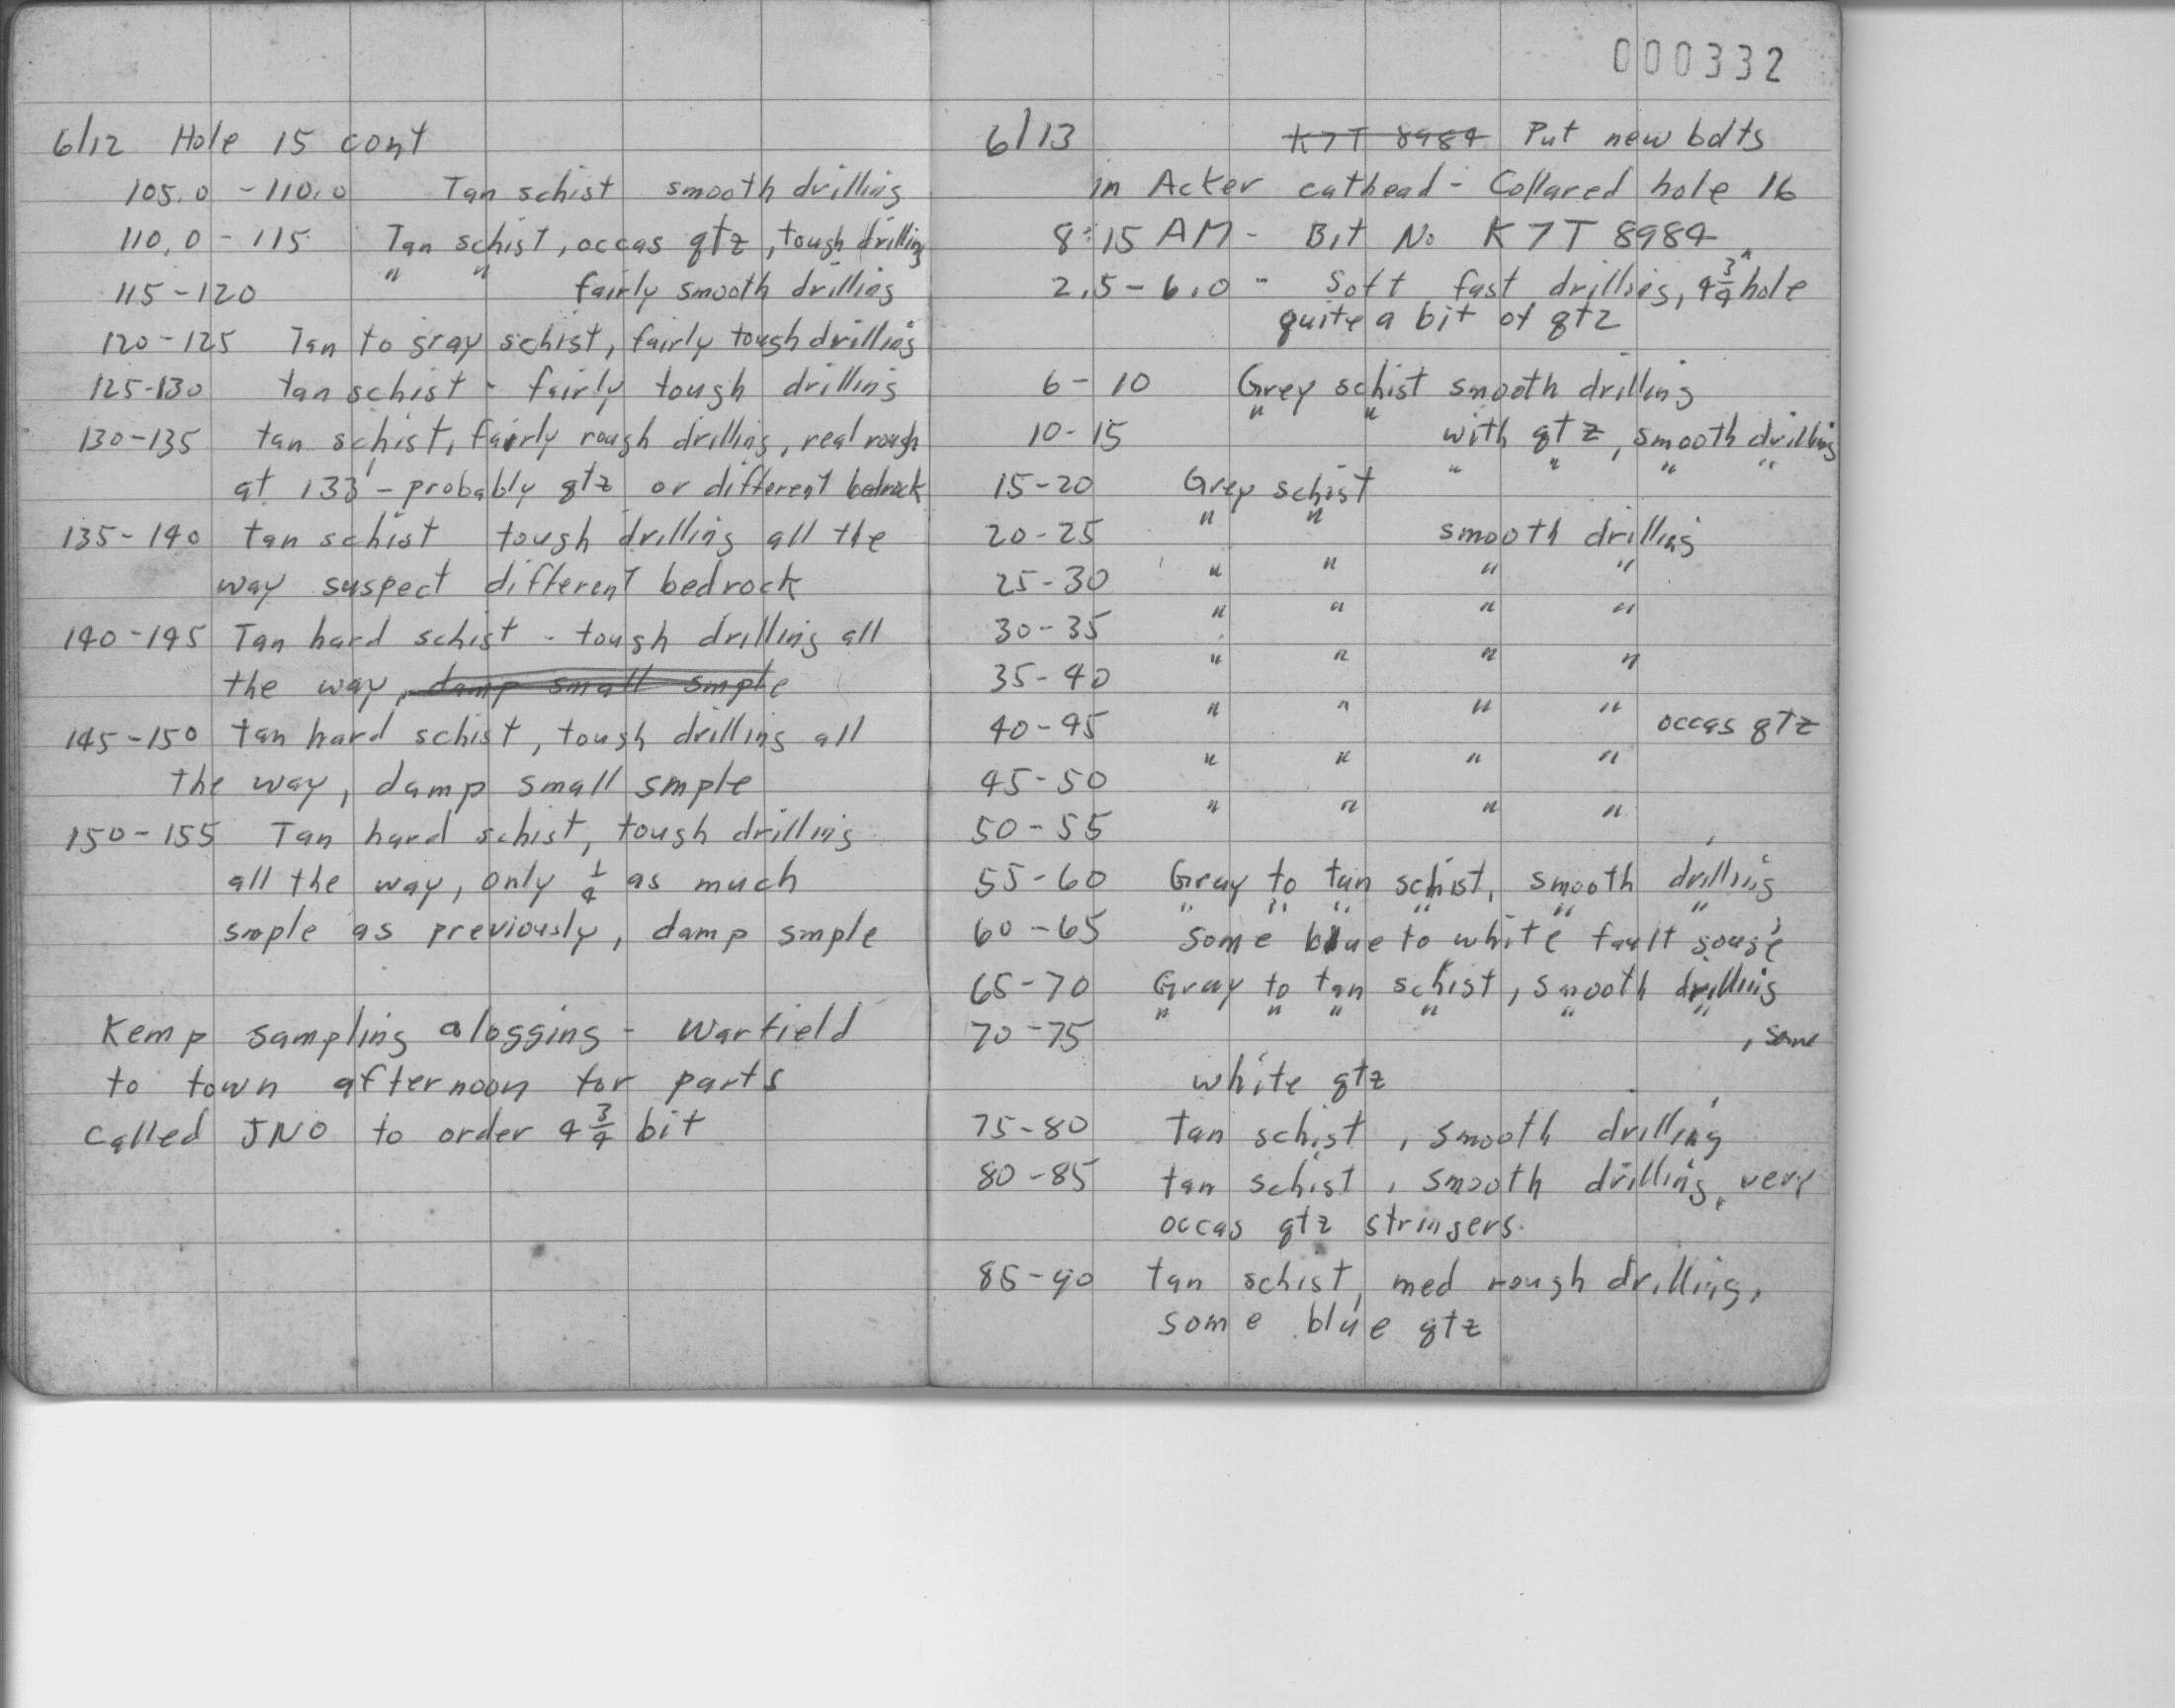 6/12 Hole 15 cont
105.0 - 110.0 Tan schist smooth drilling
110.0 - 115 Tan schist, occas qtz, tough drilling
115 - 120 " " fairly smooth drilling
120 - 125 Tan to gray schist, fairly tough drilling
125-130 tan schist - fairly tough drilling
130-135 tan schist, fairly rough drilling, real rough
at 133' - probably qtz or different bedrock
135 - 140 tan schist tough drilling all the
way suspect different bedrock
140 - 145 Tan hard schist - tough drilling all
the way, damp small smple
145 - 150 tan hard schist, tough drilling all
the way, damp small smple
150 - 155 Tan hard schist, tough drilling
all the way, only 1/4 as much
smple as previously, damp smple
Kemp sampling & logging - Warfield
to town afternoon for parts
Called JNO to order 4 3/4 bit
000332
6/13 K7T 8984 Put new bolts
in Acker cathead - Collared hole 16
8:15 AM - Bit No K7T 8984
2.5 - 6.0 - Soft fast drilling, 4 3/4" hole
quite a bit of qtz
6 - 10 Grey schist smooth drilling
10 - 15 " " with qtz, smooth drilling
15 - 20 Grey schist " " " "
20 - 25 " " smooth drilling
25 - 30 " " " "
30 - 35 " " " "
35 - 40 " " " "
40 - 45 " " " " occas qtz
45 - 50 " " " "
50 - 55 " " " "
55 - 60 Gray to tan schist, smooth drilling
60 - 65 " " " " " "
some blue to white fault gouge
65 - 70 Gray to tan schist, smooth drilling
70 - 75 " " " " " ", some
white qtz
75 - 80 tan schist, smooth drilling
80 - 85 tan schist, smooth drilling, very
occas qtz stringers.
85 - 90 tan schist, med rough drilling,
some blue qtz